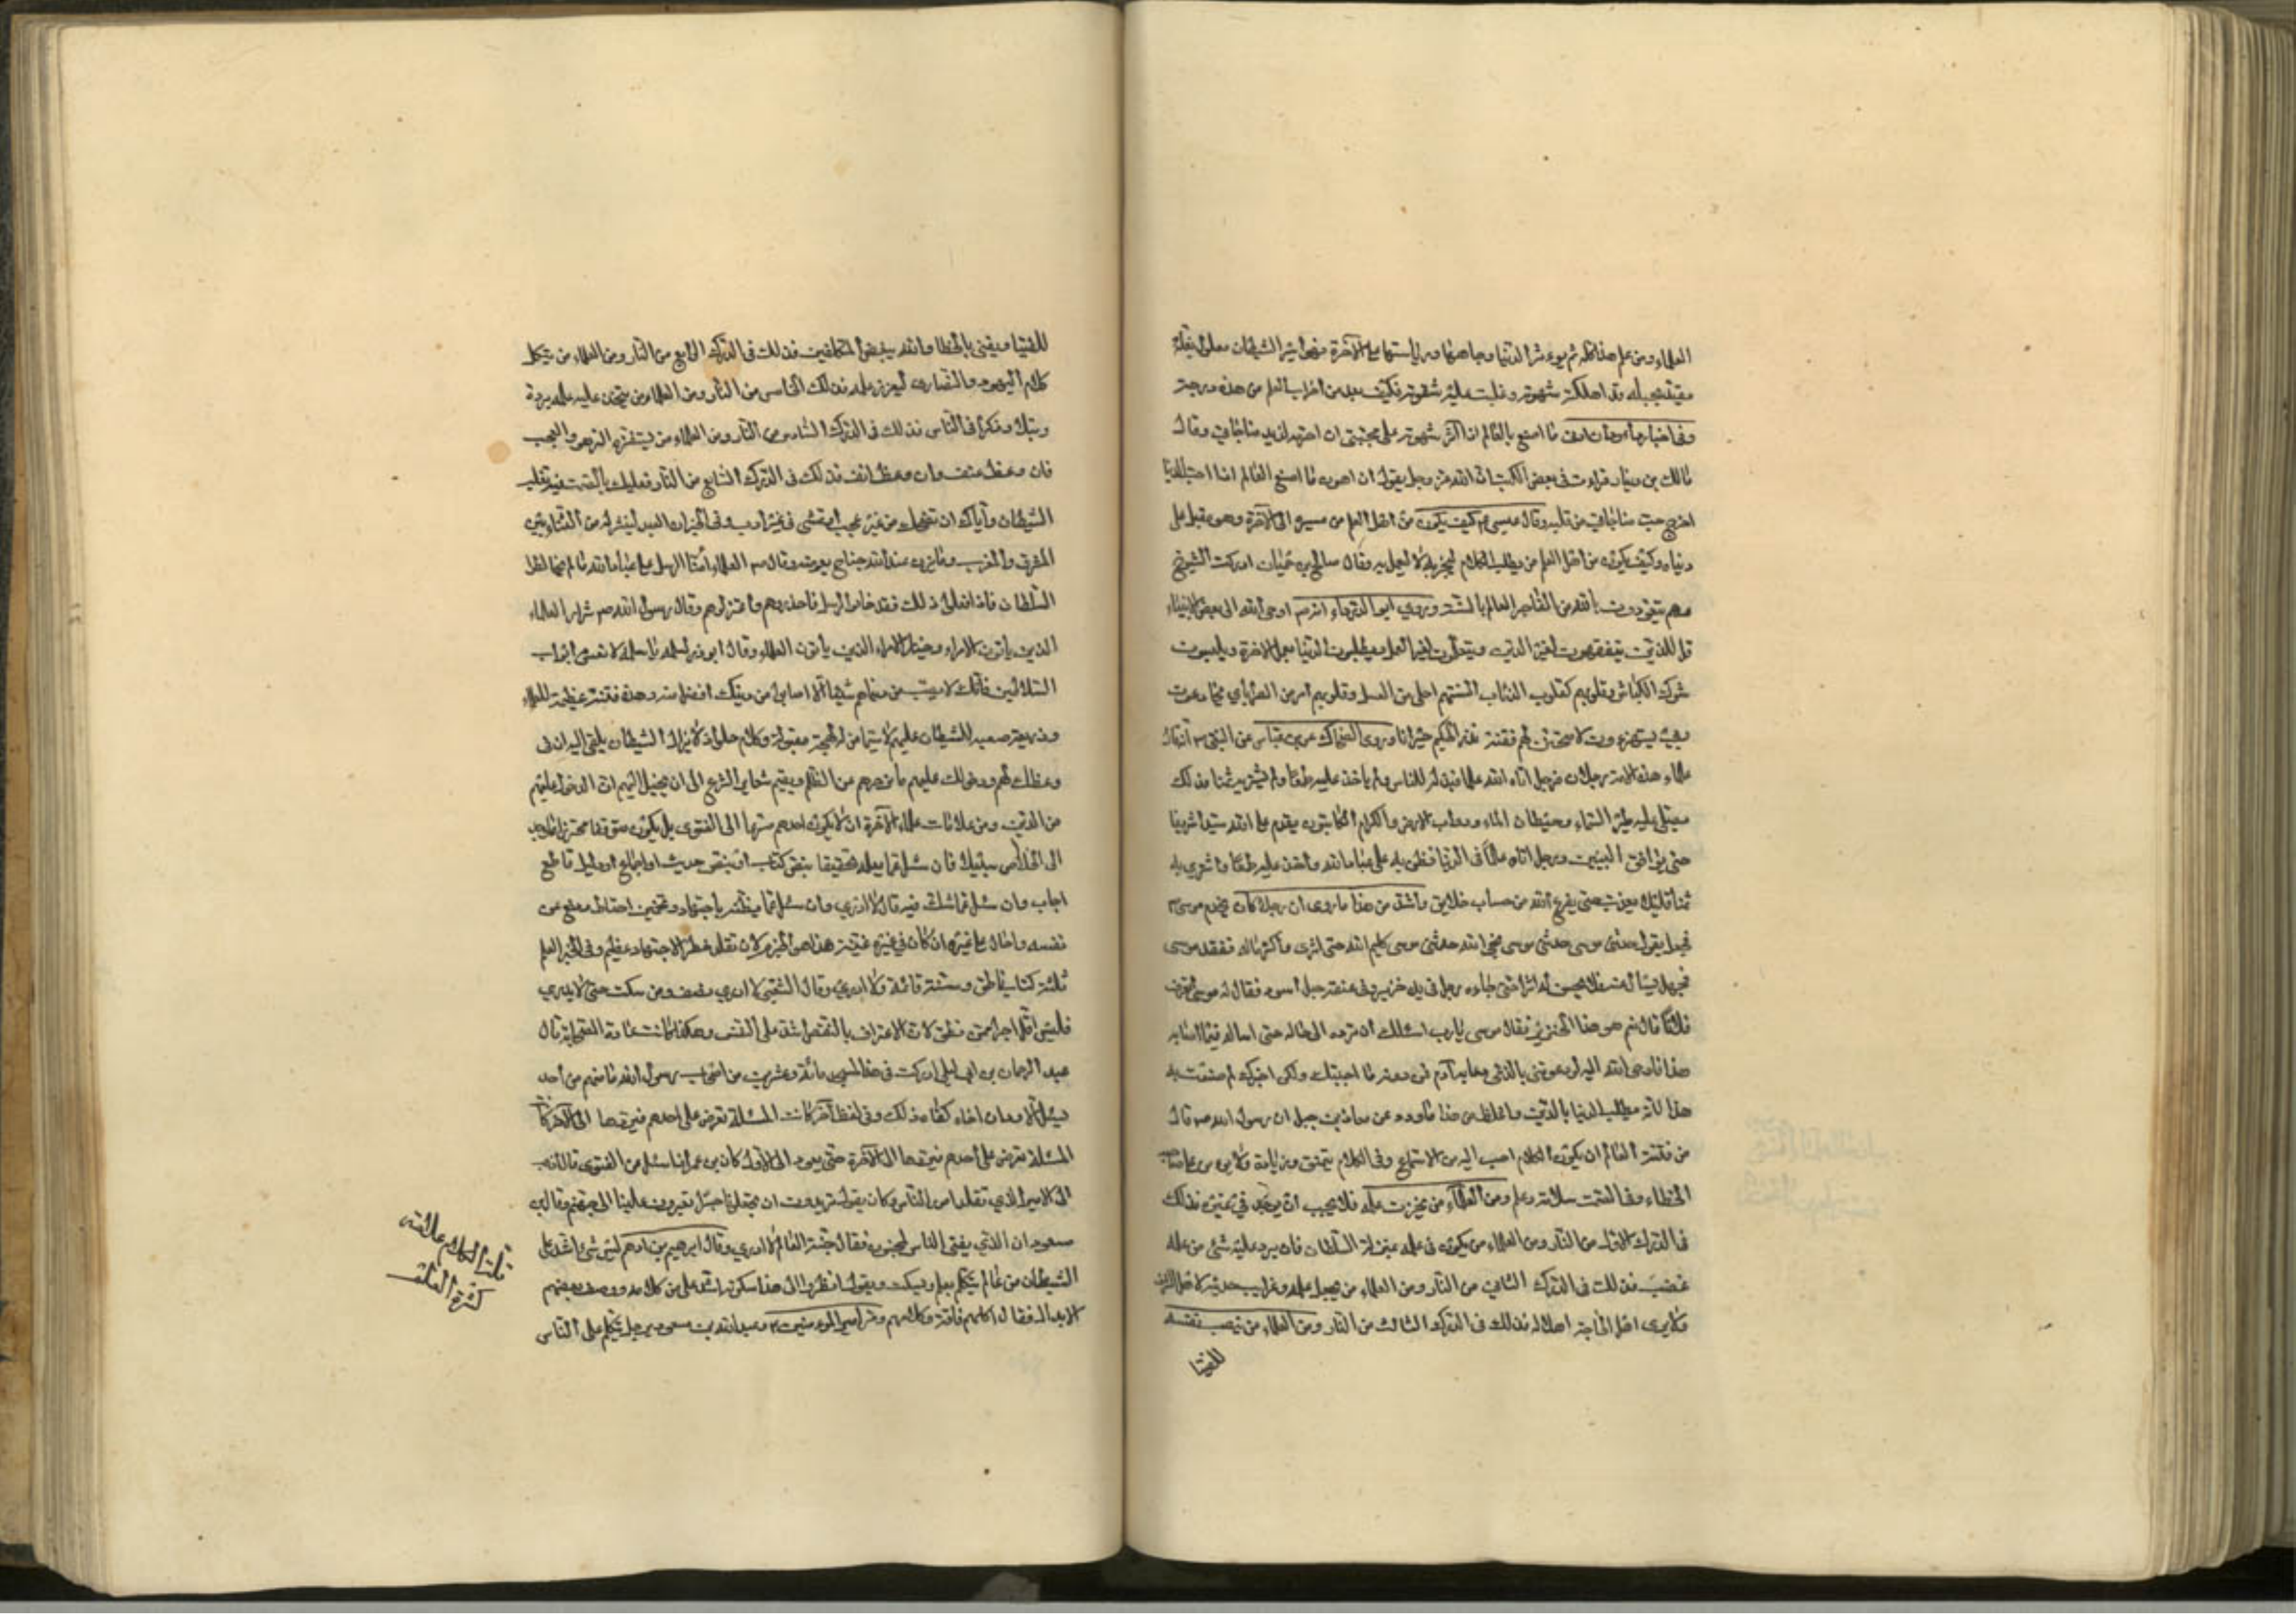 العلماء ومن علم هذا كله ثم يؤثر الدنيا وجاهها ورياستها على الآخرة فهو أسير الشيطان
قد اهلكته شهوته وغلبت عليه شقوته فكيف يعد من احزاب العلم من هذه درجته
وفى اخبار داود ان ادنى ما اصنع بالعالم اذا اثر شهوته على محبتى ان احرمه لذيذ مناجاتي وقال
مالك بن دينار قرات فى بعض الكتب ان الله عز وجل يقول ان اهون ما اصنع العالم اذا احب الدنيا
اخرج حب مناجاتي من قلبه وقال عيسى ع كيف يكون من اهل العلم من مسيره الى الآخرة وهو مقبل على
دنياه وكيف يكون من اهل العلم من يطلب الكلام ليخبر به لا ليعمل به وقال صالح بن حيان ادركت الشيوخ
وهم يتعوذون بالله من الفاجر العالم بالسنة وروى ابو الدرداء انه ص اوحى الله الى بعض الانبياء
قل للذين يتفقهون لغير الدين ويتعلمون لغير العمل ويطلبون الدنيا بعمل الآخرة ويلبسون
مسوك الكباش وقلوبهم كقلوب الذئاب السنتهم احلى من العسل وقلوبهم امر من الصبر اياي يخادعون
وبي يستهزءون لاتيحن لهم فتنة تذر الحكيم حيرانا وروى الضحاك عن بن عباس عن النبي ص انه قال
علماء هذه الامة رجلان فرجل اتاه الله علما فبذله للناس ولم ياخذ عليه طمعا ولم يشتر به ثمنا فذلك
يصلى عليه طير السماء وحيتان الماء ودواب الارض والكرام الكاتبون يقدم على الله سيدا شريفا
حتى يوافق النبيين ورجل اتاه علما فى الدنيا فظن به على عباد الله واخذ عليه طمعا واشترى به
ثمنا قليلا حتى يفرغ الله من حساب خلايق واشد من هذا ما روى ان رجلا كان يخدم موسى ع
فجعل يقول حدثنى موسى حدثنى موسى نجى الله حدثنى موسى كليم الله حتى اثرى وكثر ماله ففقده موسى
فجعل يسأل عنه فلا يحس له اثرا حتى جاءه رجل فى يده خنزير وفى عنقه حبل اسود فقال له موسى اتعرف
فلانا قال نعم هو هذا الخنزير فقال موسى يا رب اسئلك ان ترده الى حاله حتى اساله فيما اصابه
هذا فاوحى الله اليه لو دعوتنى بالذي دعا به آدم فمن دونه ما اجبتك ولكن اخبرك لم صنعت به
هذا لانه يطلب الدنيا بالدين واغلظ من هذا ما ورد عن معاذ بن جبل ان رسول الله ص قال
من فتنة العالم ان يكون الكلام احب اليه من الاستماع وفى الكلام تنميق وزيادة ولا يؤمن على صاحبه
الخطاء وفى الصمت سلامة وعلم ومن العلماء من يخزن علمه فلا يحب ان يوجد فى غيره فذلك
فى الدرك الاول من النار ومن العلماء من يكون فى علمه بمنزلة السلطان فان يرد عليه شئ من علمه
غضب فذلك فى الدرك الثانى من النار ومن العلماء من يجعل علمه وغرايب حديثه لاهل الشرف
ولا يرى اهل الحاجة اهلا له فذلك فى الدرك الثالث من النار ومن العلماء من ينصب نفسه
للفتيا
للفتيا ويفتى بالخطا والله يبغض المتكلفين فذلك فى الدرك الرابع من النار ومن العلماء من يتكلم
كلام اليهود والنصارى ليعزز علمه فذلك الخامس من النار ومن العلماء من يتخذ علمه مروة
ونبلا وذكرا فى الناس فذلك فى الدرك السادس من النار ومن العلماء من يستفزه الزهو والعجب
فان وعظ عنف وان وعظ انف فذلك فى الدرك السابع من النار فعليك بالصمت فبه تغلب
الشيطان واياك ان تضحك من غير عجب او تمشى فى غير ارب وفى الخبر ان العبد لينشر له من الثناء بين
المشرق والمغرب وما يزن عند الله جناح بعوضة وقال ص العلماء امناء الرسل على عباد الله ما لم يخالطوا
السلطان فاذا فعلوا ذلك فقد خانوا الرسل فاحذروهم واعتزلوهم وقال رسول الله ص شرار العلماء
الذين ياتون الامراء وخيار الامراء الذين ياتون العلماء وقال ابو ذر لسلمة يا سلمة لا تغش ابواب
السلاطين فانك لا تصيب من دنياهم شيئا الا اصابوا من دينك افضل منه وهذه فتنة عظيمة للعلماء
وذريعة صعبة للشيطان عليهم لا سيما من له لهجة مقبولة وكلام حلو اذ لا يزال الشيطان يلقى اليه ان فى
وعظك لهم ودخولك عليهم ما يزجرهم عن الظلم ويقيم شعاير الشرع الى ان يخيل اليهم ان الدخول عليهم
من الدين ومن علامات علماء الآخرة ان لا يكون احدهم متسرعا الى الفتوى بل يكون متوقفا محترزا ما وجد
الى الخلاص سبيلا فان سئل عما يعلمه تحقيقا بنص كتاب او بنص حديث او اجماع او دليل قاطع
اجاب وان سئل عما شك فيه قال لا ادري وان سئل عما يظنه باجتهاد وتخمين احتاط ودفع عن
نفسه واحال على غيره ان كان فى غيره غنية هذا هو الحزم لان تقلد خطر الاجتهاد عظيم وفى الخبر العلم
ثلثة كتاب ناطق وسنة قائمة ولا ادري وقال الشعبى لا ادري نصف ومن سكت حيث لا يدري
فليس اقل اجرا ممن نطق لان الاعتراف بالنقص اشد على النفس وهكذا كانت عادة الصحابة قال
عبد الرحمان بن ابى ليلى ادركت فى هذا المسجد مائة وعشرين من اصحاب رسول الله ما منهم من احد
يسئل الا ود ان اخاه كفاه ذلك وفى لفظ آخر كانت المسئلة تعرض على احدهم فيردها الى الآخر
المسئلة تعرض على احدهم فيردها الى الآخر حتى يعود الى الاول كان بن عمر اذا سئل عن الفتوى قال اذهب
الى الامير الذي تقلد امر الناس وكان يقول تريدون ان تجعلونا جسرا تعبرون علينا الى جهنم وقال بن
مسعود ان الذي يفتى الناس لمجنون فقال جنة العالم لا ادري وقال ابرهيم بن ادهم ليس شئ اشد على
الشيطان من عالم يتكلم بعلم ويسكت ويقول انظروا الى هذا سكوته اشد على من كلامه ووصف بعضهم
الابدال فقال اكلهم فاقة وكلامهم ومر امير المؤمنين ع وعبد الله بن مسعود برجل يتكلم على الناس
قلت الكلام علامة
كثرة العلم